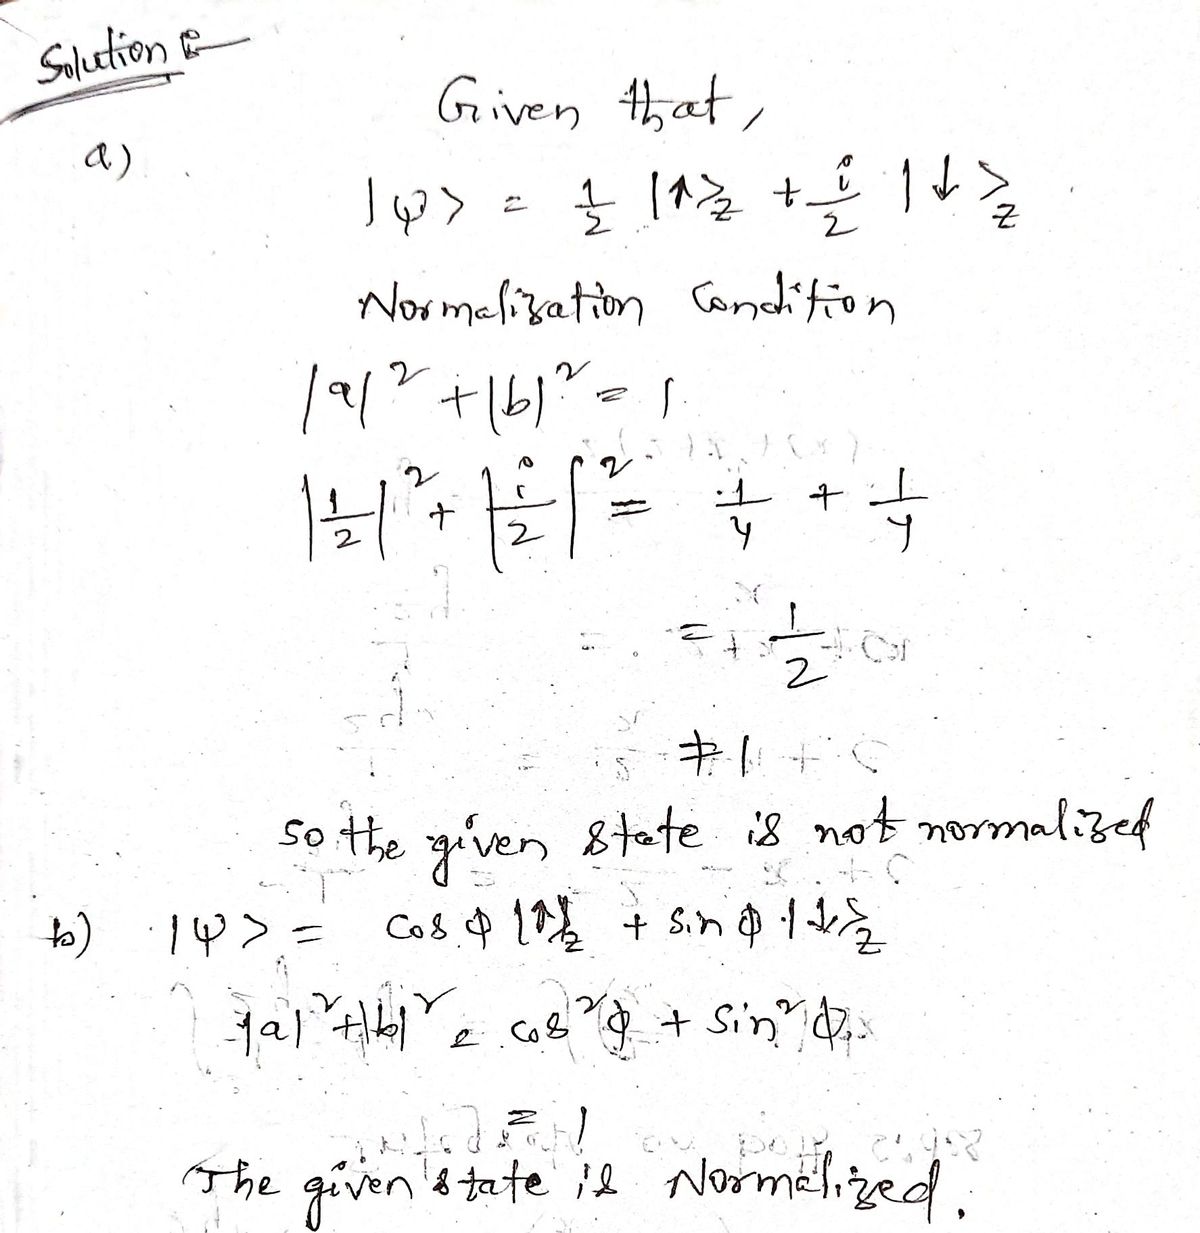 Solution :-
a)
Given that,
|ψ> = 1/2 |↑>z + i/2 |↓>z
Normalization Condition
|a|² + |b|² = 1
|1/2|² + |i/2|² = 1/4 + 1/4
= 1/2
≠ 1
So the given state is not normalized
b) |ψ> = cos ϕ |↑>z + sin ϕ |↓>z
|a|² + |b|² = cos²ϕ + sin²ϕ
= 1
The given state is Normalized.